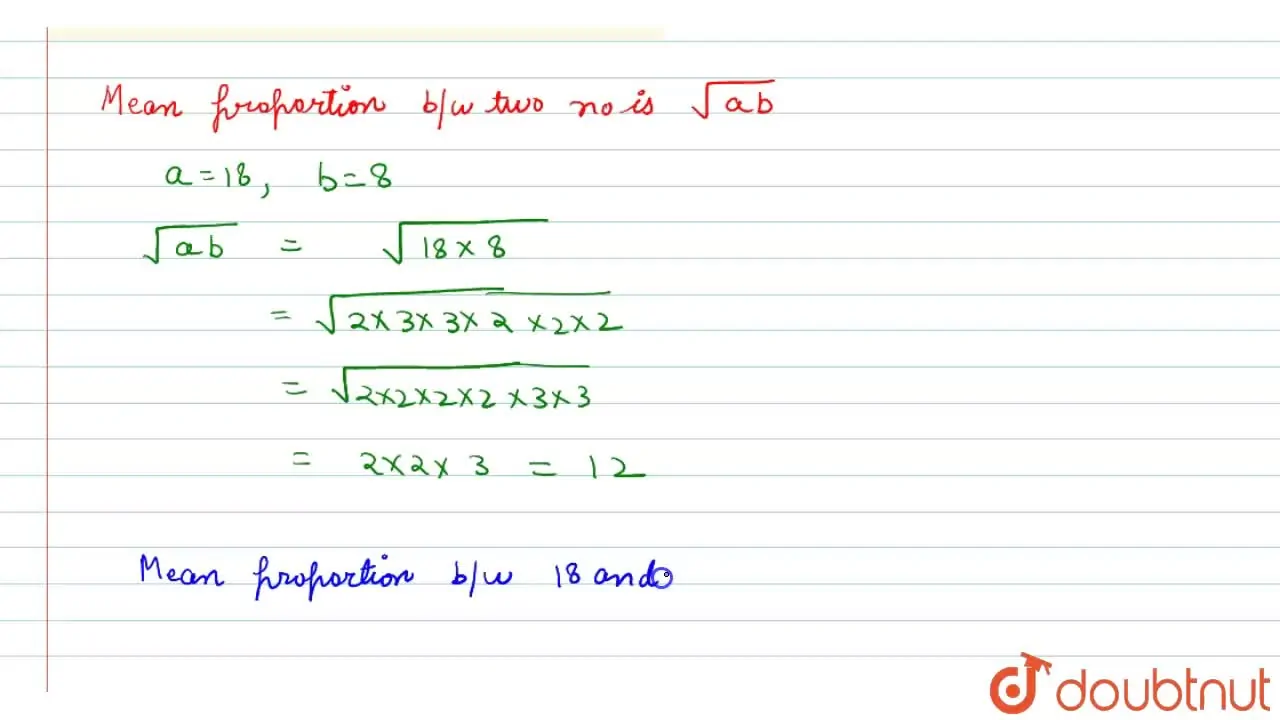 Mean proportion b/w two no is √ab
a=18, b=8
√ab = √18×8
= √2×3×3×2×2×2
= √2×2×2×2×3×3
= 2×2×3 = 12
Mean proportion b/w 18 and
doubtnut